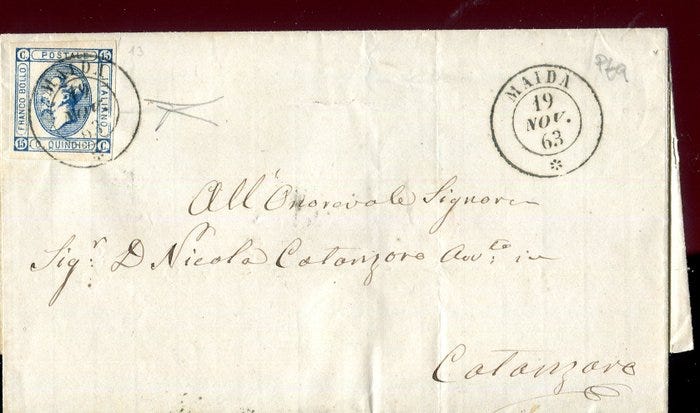 C. POSTALE 15
FRANCO BOLLO
ITALIANO
15 C. QUINDICI C.
MAIDA
19
NOV.
63
13
MAIDA
19
NOV.
63
All' Onorevole Signore
Sigr. D Nicola Catanzaro Avv.to in
Catanzaro